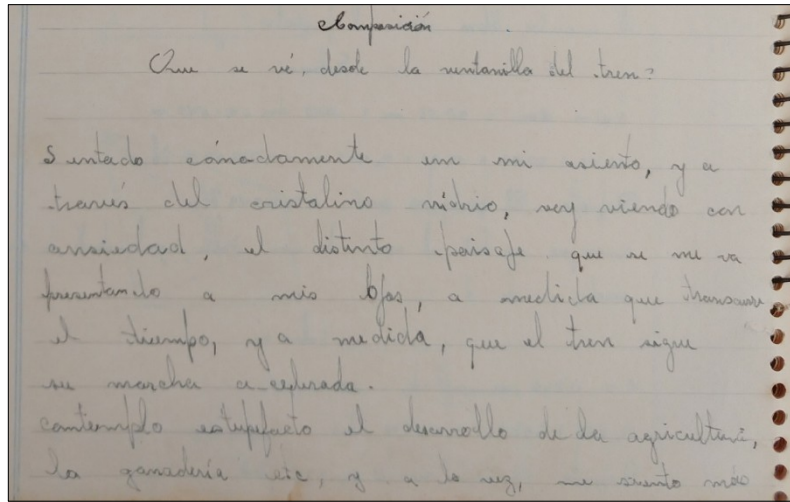 Composición
Que se vé, desde la ventanilla del tren?
Sentado cómodamente en mi asiento, y a
través del cristalino vidrio, voy viendo con
ansiedad, el distinto paisaje que se me va
presentando a mis Ojos, a medida que transcurre
el tiempo, y a medida, que el tren sigue
su marcha acelerada.
contemplo estupefacto el desarrollo de la agricultura,
la ganadería etc, y a la vez, me siento más